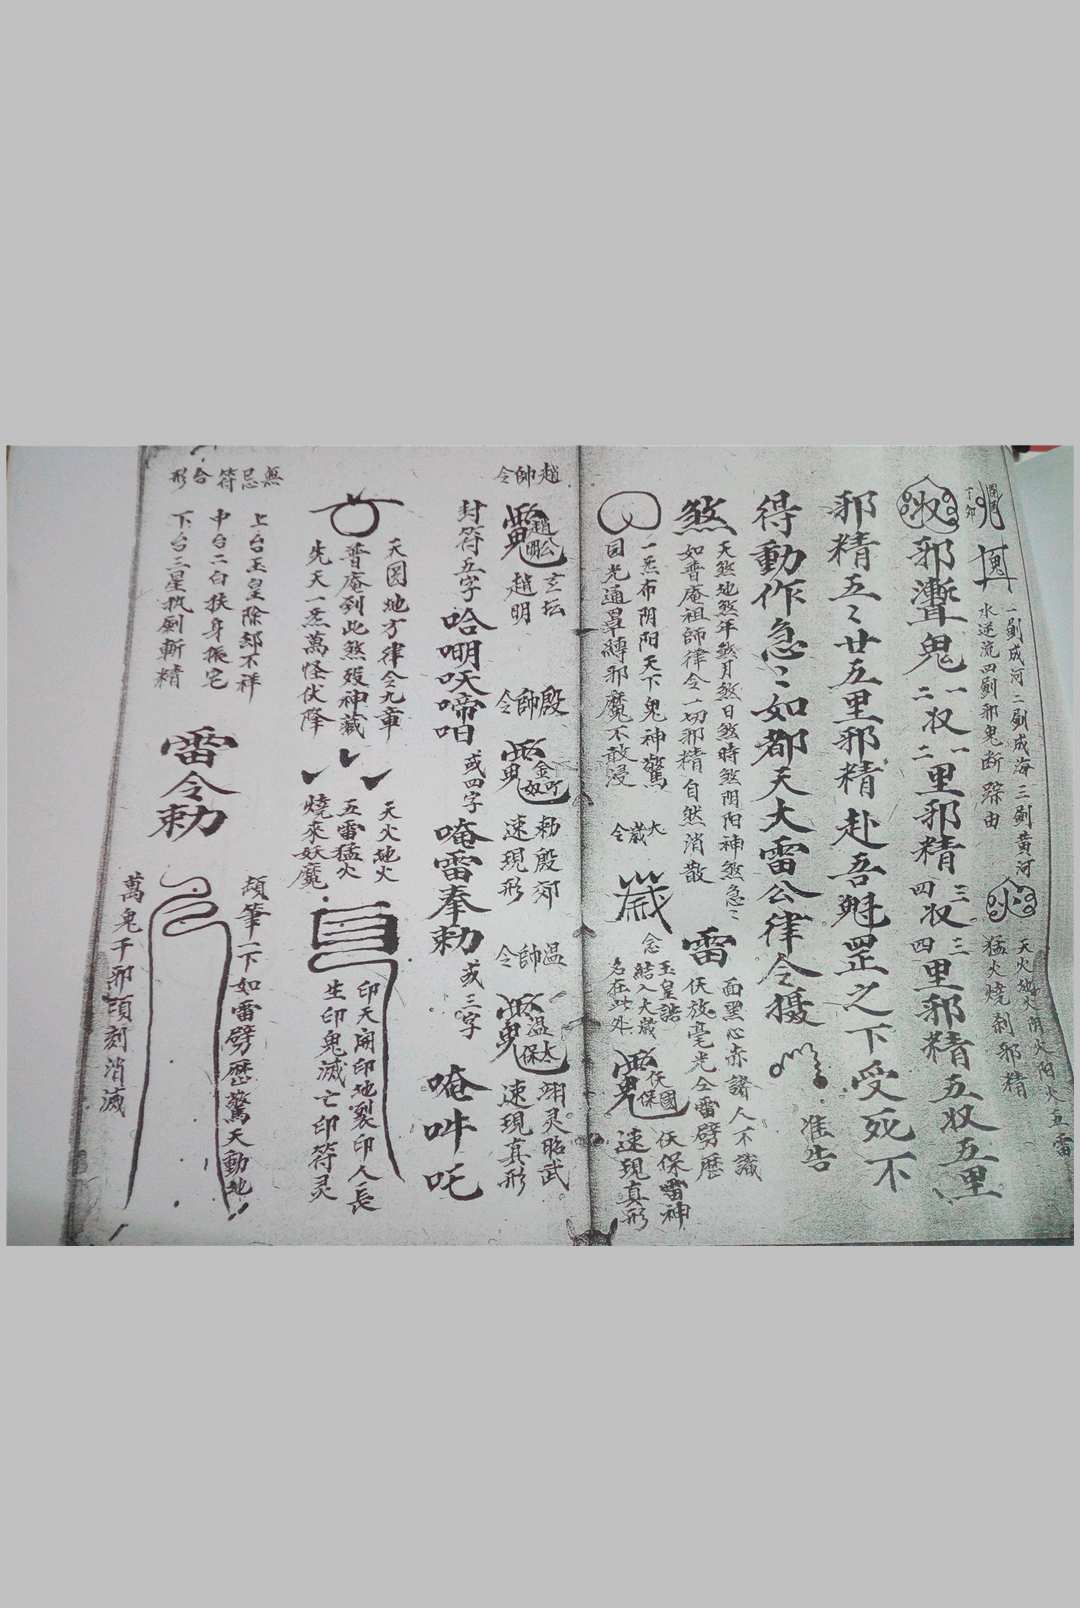 一劍成河二劍成海三劍黃河
水逆流四劍邪鬼断踪由
火
天火地火阴火阳火五雷
猛火燒剎邪精
收邪
鬼
一收一里邪精三收三里邪精五收五里
二二四四
邪精五〻廿五里邪精赴吾魁罡之下受死不
得動作急〻如都天大雷公律令摄
准告
煞
天煞地煞年煞月煞日煞時煞阴阳神煞急〻
如普庵祖師律令一切邪精自然消散
雷
面黑心赤諸人不識
伏放毫光全雷劈歷
一炁布阴阳天下鬼神驚
回光通罩縛邪魔不敢浸
大歲令
念
玉皇誥
結入大歲
名在此外
伏國保
伏保雷神
速現真形
趙帥令
趙公明
玄坛
趙明
殷帥令
金
奴
勅殷郊
速現形
温帥令
温太保
翊灵昭武
速現真形
封符五字
哈𠵇呋啼呾
或四字
唵雷奉勅
或三字
唵吽吒
天圆地方律令九章
普庵到此煞殁神藏
先天一炁萬怪伏降
天火地火
五雷猛火
燒來妖魔
印天開印地裂印人長
生印鬼滅亡印符灵
無忌符合形
上台玉皇除却不祥
中台二白扶身振宅
下台三星执劍斬精
雷令勅
頡筆一下如雷劈歷驚天動地
萬鬼千邪頃刻消滅